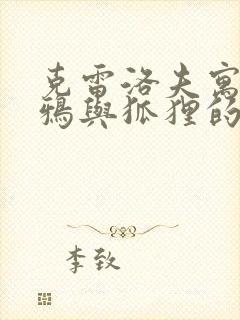 克雷洛夫寓
鴉與狐狸的
李致